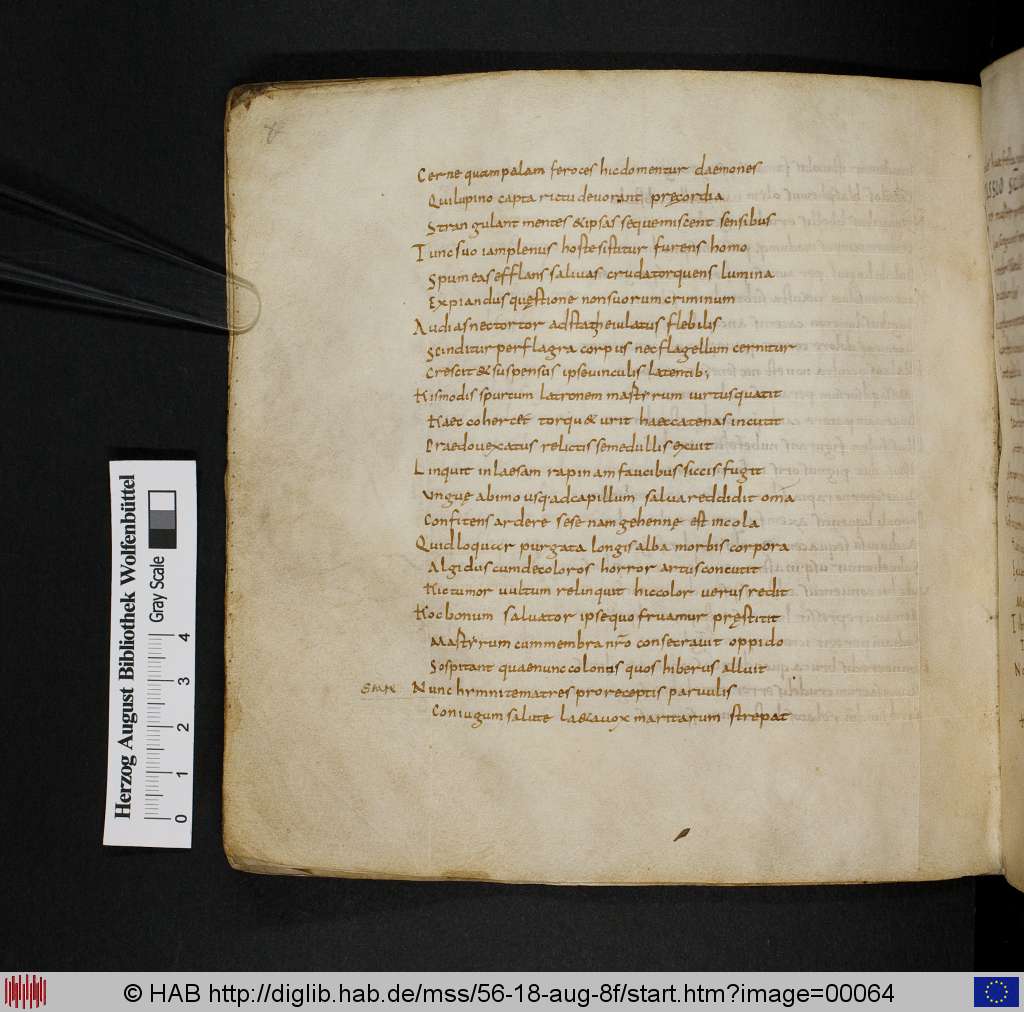 Cerne quam palam feroces hic domentur daemones
Qui lupino capta rictu devorant pręcordia
Strangulant mentes & ipsas seque miscent sensibus
Tunc suo iam plenus hoste sistitur furens homo
Spumeas efflans salivas cruda torquens lumina
Expiandus quęstione non suorum criminum
Audias nec tortor adstat heiulatus flebilis
Scinditur per flagra corpus nec flagellum cernitur
Crescit & suspensus ipse vinculis latentib;
His modis spurcum latronem martyrum virtus quatit
Haec cohercet torqu& urit haec catenas incutit
Praedo vexatus relictis se medullis exuit
Linquit inlaesam rapinam faucibus siccis fugit
Ungue ab imo usq; ad capillum salva reddidit omīa
Confitens ardere sese nam gehennę est incola
Quid loquar purgata longis alba morbis corpora
Algidus cum decoloros horror artus concutit
Hic tumor vultum relinquit hic color verus redit
Hoc bonum salvator ipse quo fruamur pręstitit
Martyrum cum membra nr̄o consecravit oppido
Sospitant quae nunc colonos quos hiberus alluit
State Nunc hymnite matres pro receptis parvulis
Coniugum salute laeta vox maritarum strepat
Herzog August Bibliothek Wolfenbüttel
Gray Scale
0 1 2 3 4
© HAB http://diglib.hab.de/mss/56-18-aug-8f/start.htm?image=00064